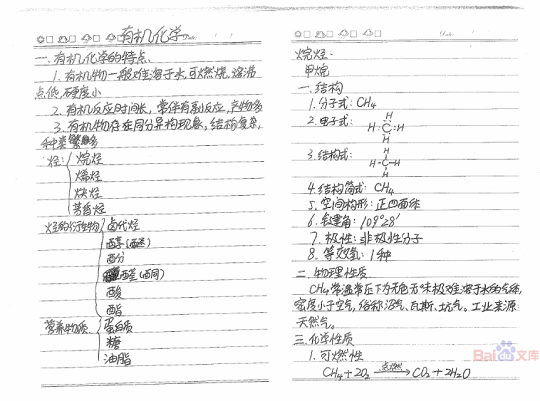 有机化学
一. 有机化学的特点.
1. 有机物一般难溶于水, 可燃烧, 熔沸
点低, 硬度小
2. 有机反应时间长, 常伴有副反应, 产物多
3. 有机物存在同分异构现象, 结构复杂,
种类繁多
烃: 烷烃
烯烃
炔烃
芳香烃
烃的衍生物 卤代烃
醇(酉)
酚
醛(酮)
酸
酯
营养物质: 蛋白质
糖
油脂
烷烃:
甲烷
一. 结构
1. 分子式: CH4
2. 电子式:
H
H:C:H
H
3. 结构式:
H
H-C-H
H
4. 结构简式: CH4
5. 空间构形: 正四面体
6. 键角: 109°28′
7. 极性: 非极性分子
8. 等效氢: 1种
二. 物理性质
CH4常温常压下为无色无味极难溶于水的气体,
密度小于空气, 俗称沼气、瓦斯、坑气。工业来源:
天然气.
三. 化学性质
1. 可燃性
CH4+2O2 点燃→ CO2+2H2O
Bai 文库